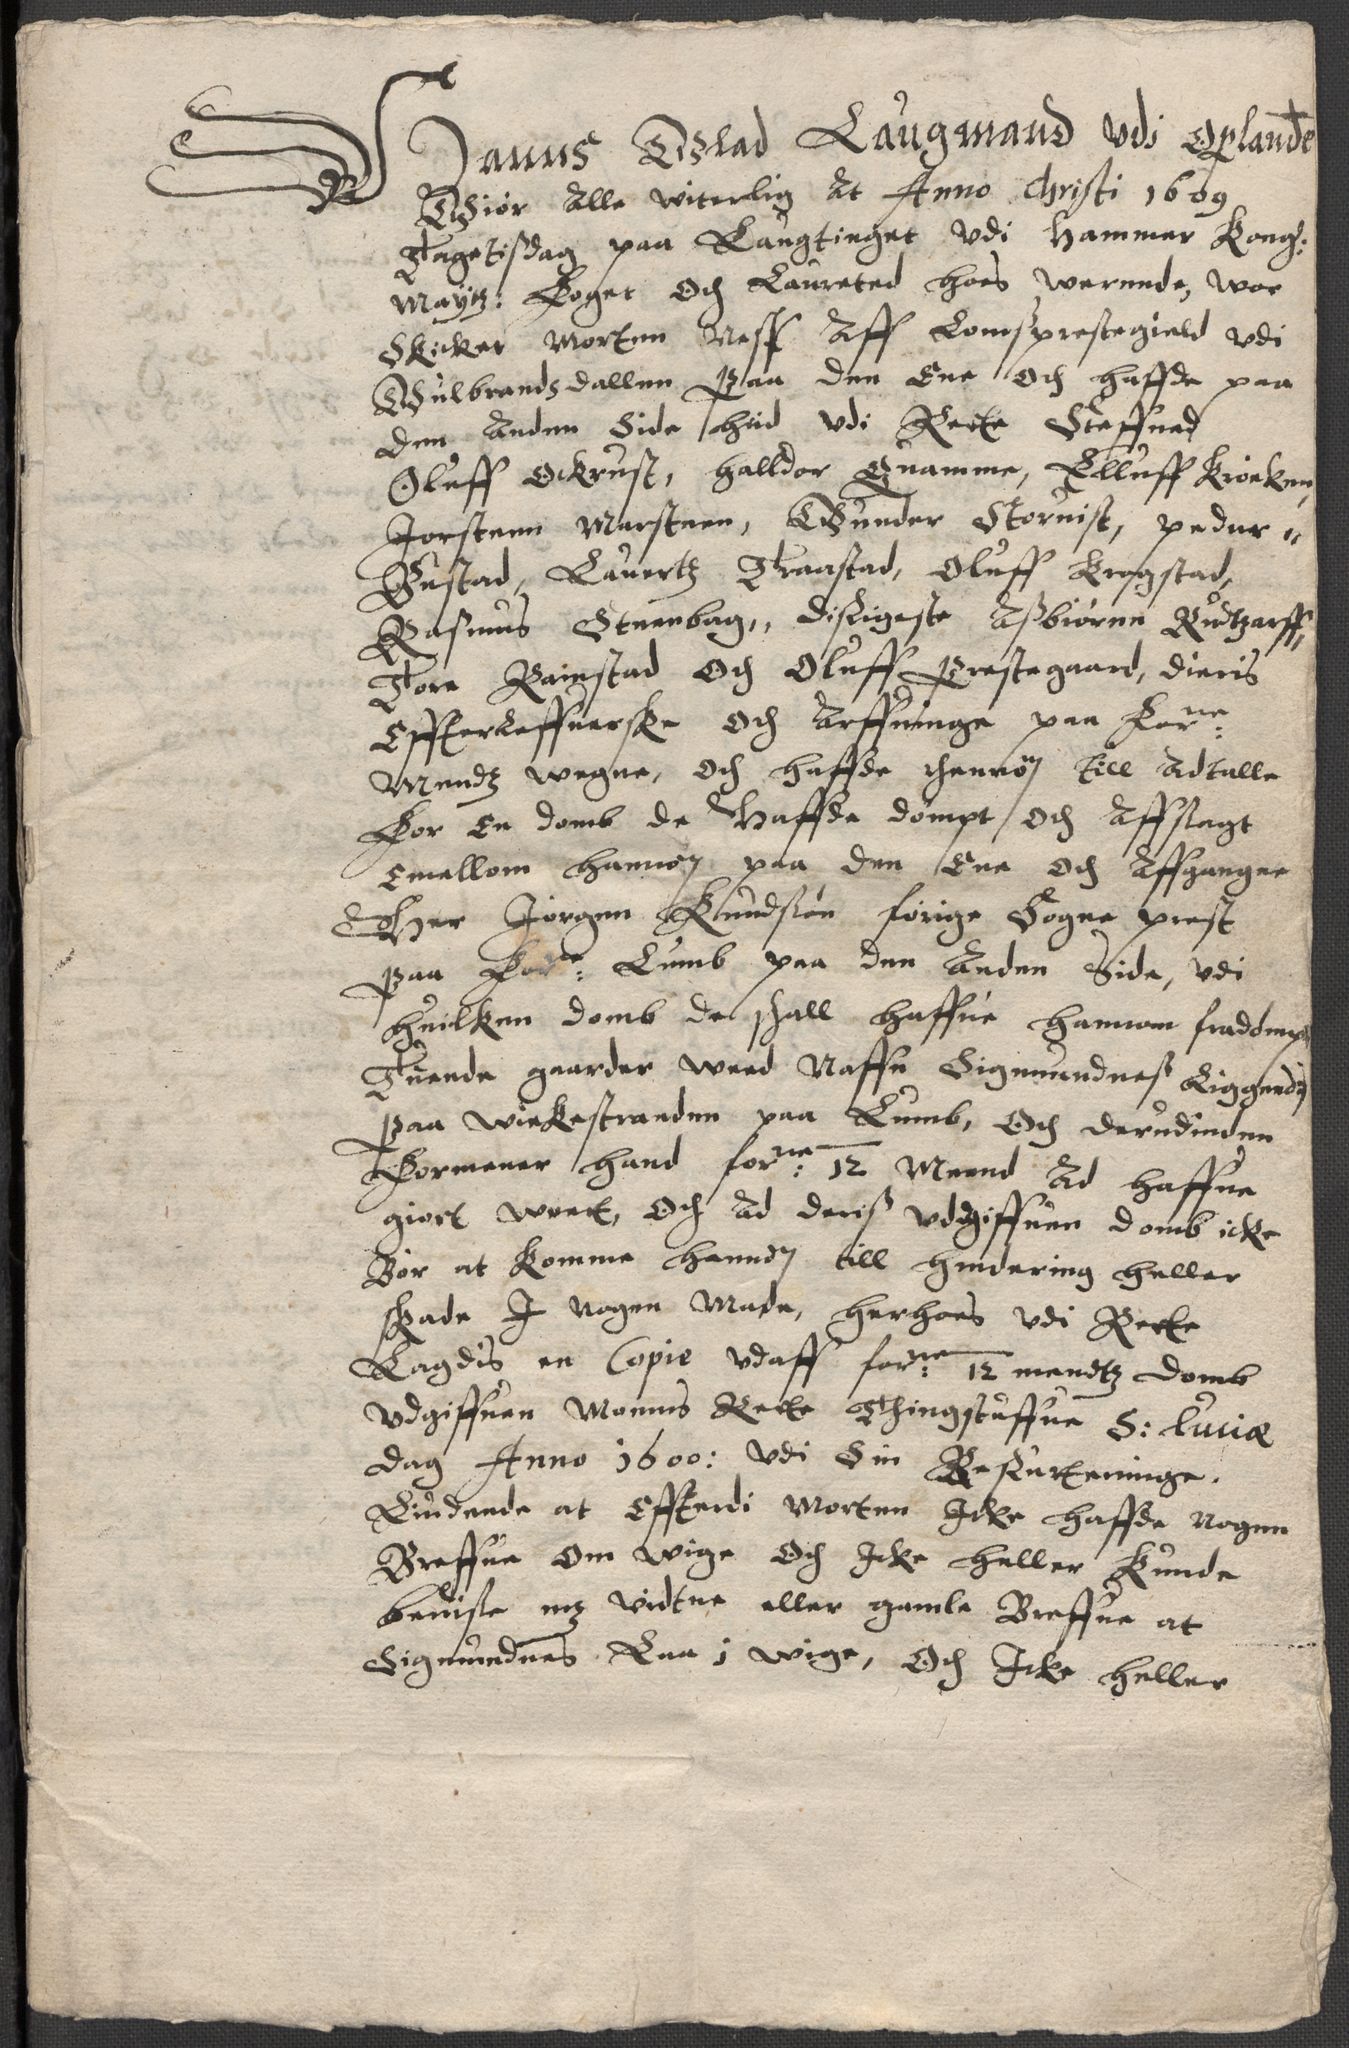 Hanns Glad Laugmand vdi Oplande
Giör Alle witerlig At Anno Christi 1609
Tagetisdag paa Laugtinget vdi Hammer Kong:
Maytz: Foget Och Laureted hoes werende, wor
Skicket Morten Neff Aff Lomsprestegield vdi
Gulbrandsdallen Paa den Ene Och haffde paa
den Anden Side hid vdi Rette Steffned
Oluff Ockrust, Halldor Quamme, Elluff Kröcken,
Torstenn Marsteen, Gunder Storuist, peder
Sustad, Lauertz Traastad, Oluff Krogstad,
Rasmus Steenbag,, disligeste Assbiörnn
Tore Rainstad Och Oluff Prestegaard, dieris
Effterleffuerske Och Arffuinge paa For^ne:
Mendtz wegne, Och haffde thennom till Adtalle
For En domb de Haffde dömpt Och Affsagt
Emellom hannom paa den Ene Och Affgangne
Her Jörgen Knudsön förige Sogne prest
paa For^ne: Lumb paa den Anden Side, vdi
huilken domb de skall haffue hannom fradömpt
Tuende gaarder weed Naffn Sigmundnes Liggendis
paa wickestranden paa Lumb, Och derudinden
Formener hand for^ne: 12 Meend Ad haffue
giort wrett, Och Ad deris vdgiffuen domb icke
Bör at komme hannom till hindering heller
skade I nogen Made, herhoes vdi Rette
Lagdis en Copie vdaff for^ne: 12 mendtz domb
vdgiffuen Wonms Rette Thingstuffue S: Luciæ
dag Anno 1600: vdi Sin Beslutteninge.
Liudende at Effterdi Morten Icke haffde nogen
Breffue Om wige Och Icke heller kunde
beuise mz vidtne eller gamle Breffue at
Sigmundnes Laa i wige, Och Icke heller